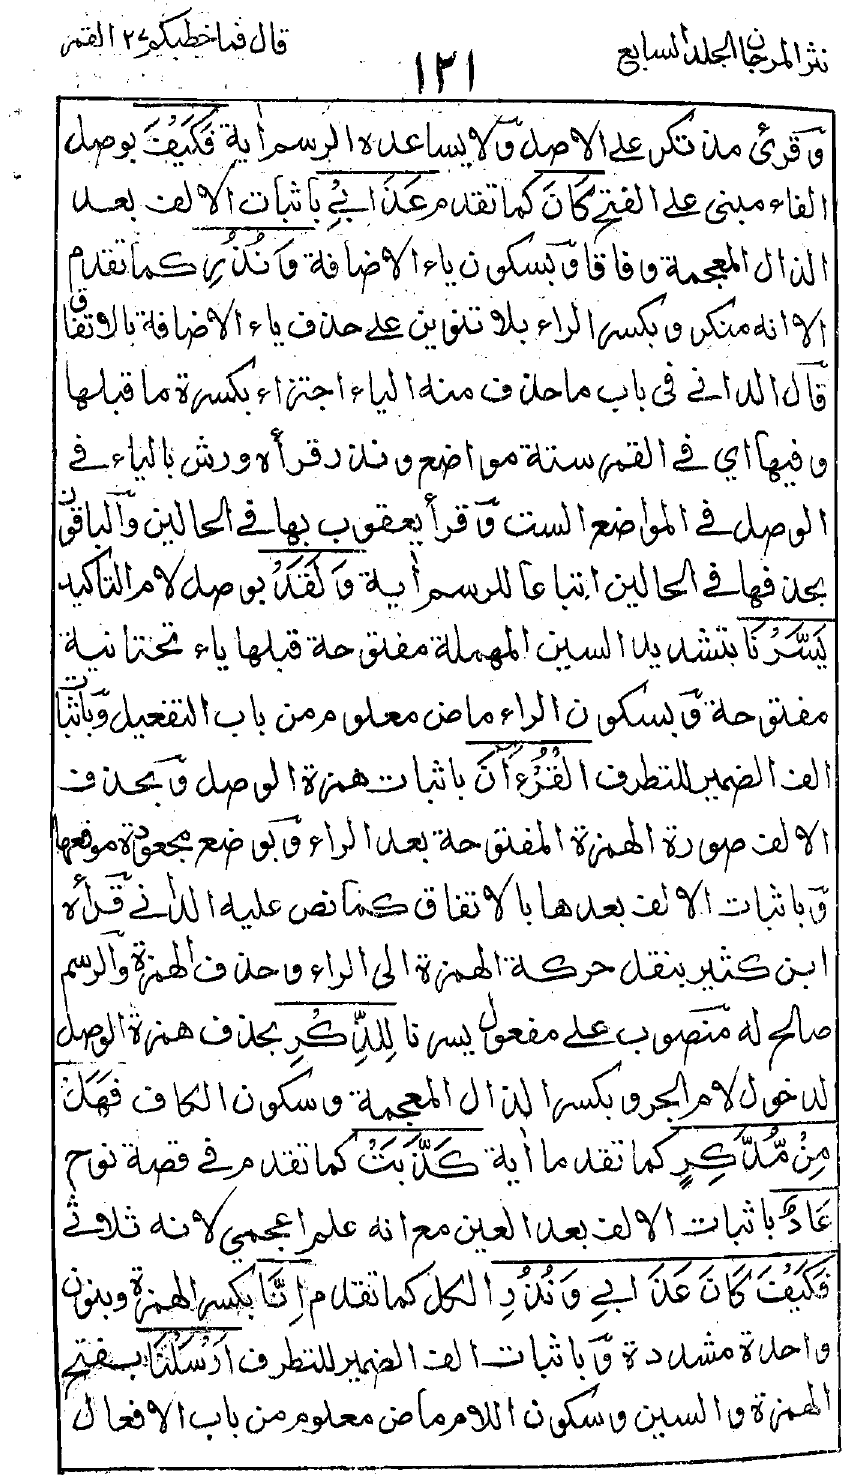 نثر المرجان الجلد السابع
١٢١
قال فما خطبكم ٢٧ القمر
وقرئ مذتكر على الاصل ولا يساعده الرسم أية فَكَيْفَ بوصل
الفاء مبنى على الفتح كَانَ كما تقدم عَذَابِيْ باثبات الالف بعد
الذال المعجمة وفاقا وبسكون ياء الاضافة وَنُذُرِ كما تقدم
الا انه منكر وبكسر الراء بلا تنوين على حذف ياء الاضافة بالاتفاق
قال الداني في باب ما حذف منه الياء اجتزاء بكسرة ما قبلها
وفيها اي في القمر ستة مواضع ونذر قرأه ورش بالياء في
الوصل في المواضع الست وقرأ يعقوب بها في الحالين والباقون
بحذفها في الحالين اتباعا للرسم أية وَلَقَدْ بوصل لام التاكيد
يَسَّرْنَا بتشديد السين المهملة مفتوحة قبلها ياء تحتانية
مفتوحة وبسكون الراء ماض معلوم من باب التفعيل وباثبات
الف الضمير للتطرف الْقُرْءَانَ باثبات همزة الوصل وبحذف
الالف صورة الهمزة المفتوحة بعد الراء وبوضع مجعودة موقعها
وباثبات الالف بعدها بالاتفاق كما نص عليه الداني قرأه
ابن كثير بنقل حركة الهمزة الى الراء وحذف الهمزة والرسم
صالح له منصوب على مفعول يسرنا لِلذِّكْرِ بحذف همزة الوصل
لدخول لام الجر وبكسر الذال المعجمة وسكون الكاف فَهَلْ
مِنْ مُّدَّكِرٍ كما تقدما أية كَذَّبَتْ كما تقدم في قصة نوح
عَادٌ باثبات الالف بعد العين مع انه علم اعجمي لانه ثلاثي
فَكَيْفَ كَانَ عَذَابِيْ وَنُذُرِ الكل كما تقدم اِنَّا بكسر الهمزة وبنون
واحدة مشددة وباثبات الف الضمير للتطرف اَرْسَلْنَا بفتح
الهمزة والسين وسكون اللام ماض معلوم من باب الافعال